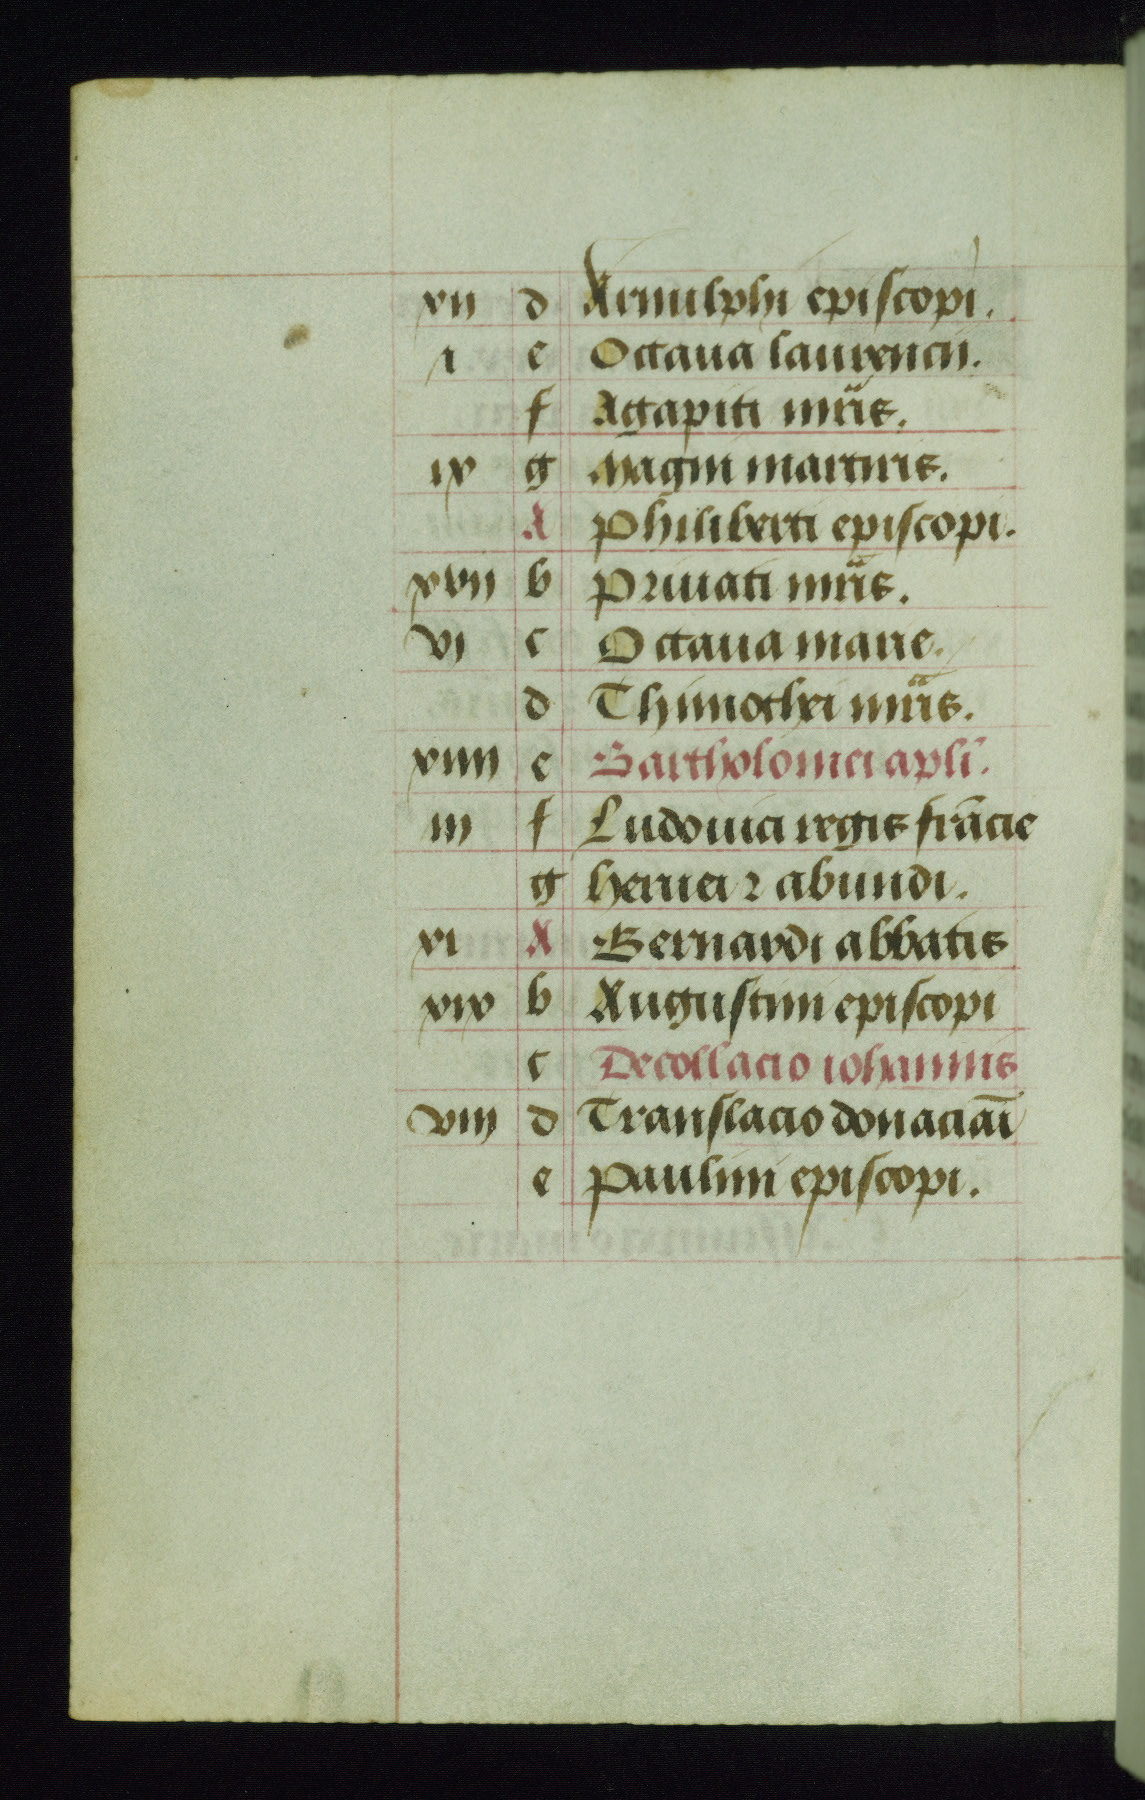 xvii d Arnulphi episcopi.
i e Octaua laurencii.
f Agapiti mr̄is.
ix g Magni martiris.
A Philiberti episcopi.
xvii b Priuati mr̄is.
vi c Octaua marie.
d Thimothei mr̄is.
xiiii e Bartholomei apl̄i.
iii f Ludouici regis frācie
g hernei ꝛ abundi.
xi A Bernardi abbatis
xix b Augustini episcopi
c Decollacio iohannis
viii d Translacio donaciāi
e Paulini episcopi.